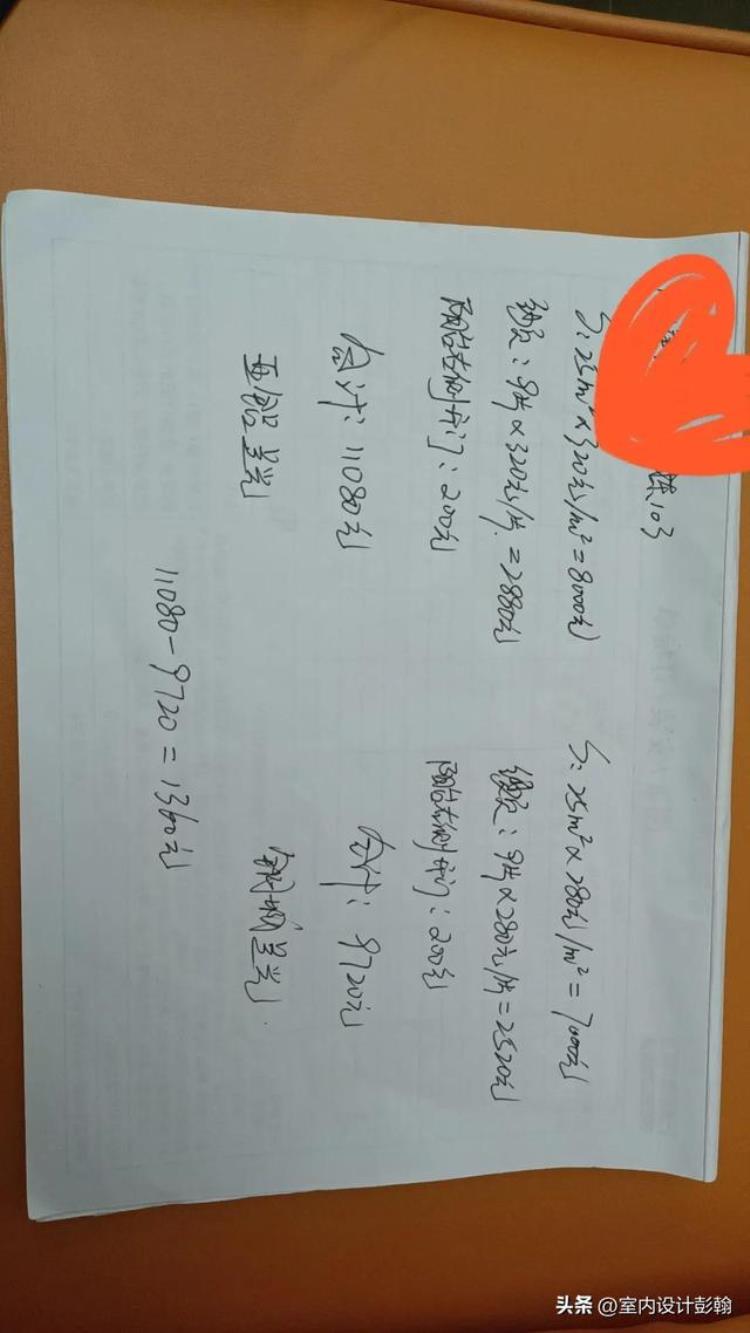 栋103
S: 25m²×320元/m²=8000元
纱窗: 9片×320元/片=2880元
阳台左侧开门: 200元
合计: 11080元
亚铝星光
S: 25m²×280元/m²=7000元
纱窗: 9片×280元/片=2520元
阳台左侧开门: 200元
合计: 9720元
星光
11080-9720=1360元
头条 @室内设计彭翰